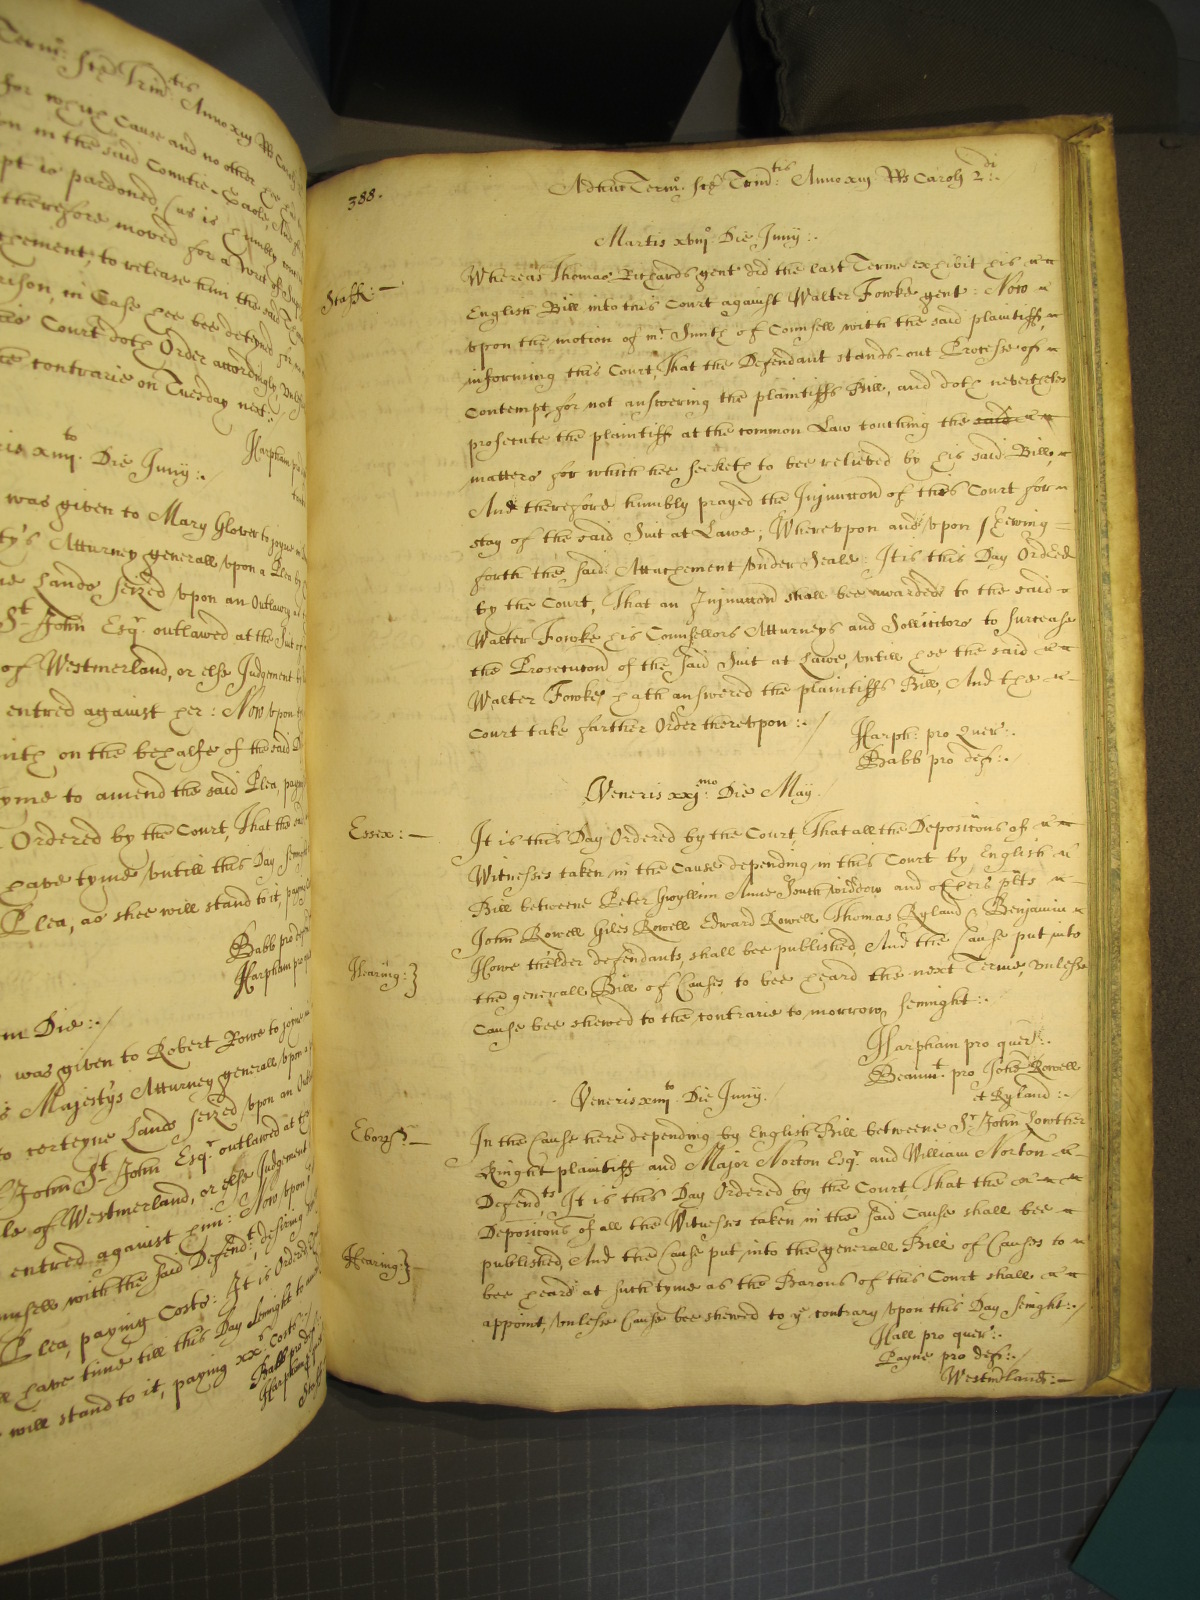 Term:o s[an]c[t]e Trin:tis Anno xiij RRs Caroli
for w[hi]ch Cause and no other hee
on in the said Countie Gaole, And
pt is pardoned, (as is humbly
therefore moved for a word of
gement, to release him the said
rison, in Case hee bee deteyned
his Court doth Order accordingly, unless
he contrarie on Tuesday next:
Harpham
ris xiiij:to Die Junij:./
was given to Mary Glover to joyne
ty's Atturney generall, vpon a Plea by
ne Lands seized vpon an Outlawry
St. John Esqr. outlawed at the Suit of
of Westmerland, or else Judgement
entred against her: Now vpon
mith on the behalfe of the said
tyme to amend the said Plea, paying
Ordered by the Court, That the
have tyme vntill this Day
Plea, as shee will stand to it, paying
Babb pro
Harpham pro
m Die:./
was given to Robert Rowe to joyne
s Majesty's Atturney generall, vpon a
to certeyne Lands seized vpon an
John St. John Esqr. outlawed at
le of Westmerland, or else Judgement
entred against him: Now vpon
unsell with the said Defend:t desiring
Plea, paying Costs: It is Ordered
ll have time till this Day Sennight to
will stand to it, paying xx.s Costs
Babb pro def:
Harpham
388.
Adhuc Term:o s[an]c[t]e Trin:tis Anno xiij RRs Caroli 2:di
Martis xviij:o Die Junij:.
Staff:—
Whereas Thomas Richards gent did the last Terme exhibit his
English Bill into this Court against Walter Fowke gent: Now
vpon the motion of mr. Smith of Counsell with the said plaintiff,
informing this Court, That the Defendant stands out Processe of
Contempt, for not answering the plaintiffs Bill, and doth neverthelesse
prosecute the plaintiff at the common Law touching the said
matters for which hee seeketh to bee relieved by his said Bill,
And therefore humbly prayed the Injuncc[i]on of this Court for
stay of the said Suit at Lawe; Wherevpon and vpon shewing
forth the said Attachment vnder Seale: It is this Day Ordered
by the Court, That an Injuncc[i]on shall bee awarded to the said
Walter Fowke his Counsellors Atturneys and Sollicitors to surcease
the Prosecuc[i]on of the said Suit at Lawe, vntill hee the said
Walter Fowke hath answered the plaintiffs Bill, And the
Court take farther Order therevpon:./
Harph: pro quer:.
Babb pro def:./
Veneris xxj:mo Die May.
Essex:—
It is this Day Ordered by the Court, That all the Deposic[i]ons of
Witnesses taken in the Cause depending in this Court by English
Bill betweene Peter Gwyllim Anne South widdow and others pl[ain]ts
John Rowell Giles Rowell Edward Rowell Thomas Ryland & Benjamin
Howe thelder defendants, shall bee published, And the Cause put into
Hearing:}
the generall Bill of Causes, to bee heard the next Terme, vnlesse
Cause bee shewed to the contrarie to morrow sennight:.
Harpham pro quer:.
Beaum:t pro John Rowell
et Ryland:.
Veneris xiiij:to Die Junij.
Ebor:—
In the Cause here depending by English Bill betweene Sr. John Lowther
Knight plaintiff and Major Norton Esqr. and William Norton
Defend:ts It is this Day Ordered by the Court, That the
Deposic[i]ons of all the Witnesses taken in the said Cause shall bee
published, And the Cause put into the generall Bill of Causes to
Hearing:}
bee heard at such tyme as the Barons of this Court shall
appoint, vnlesse Cause bee shewed to ye contrary vpon this Day Senight:./
Hall pro quer:.
Payne pro def:./
Westm[er]land:—